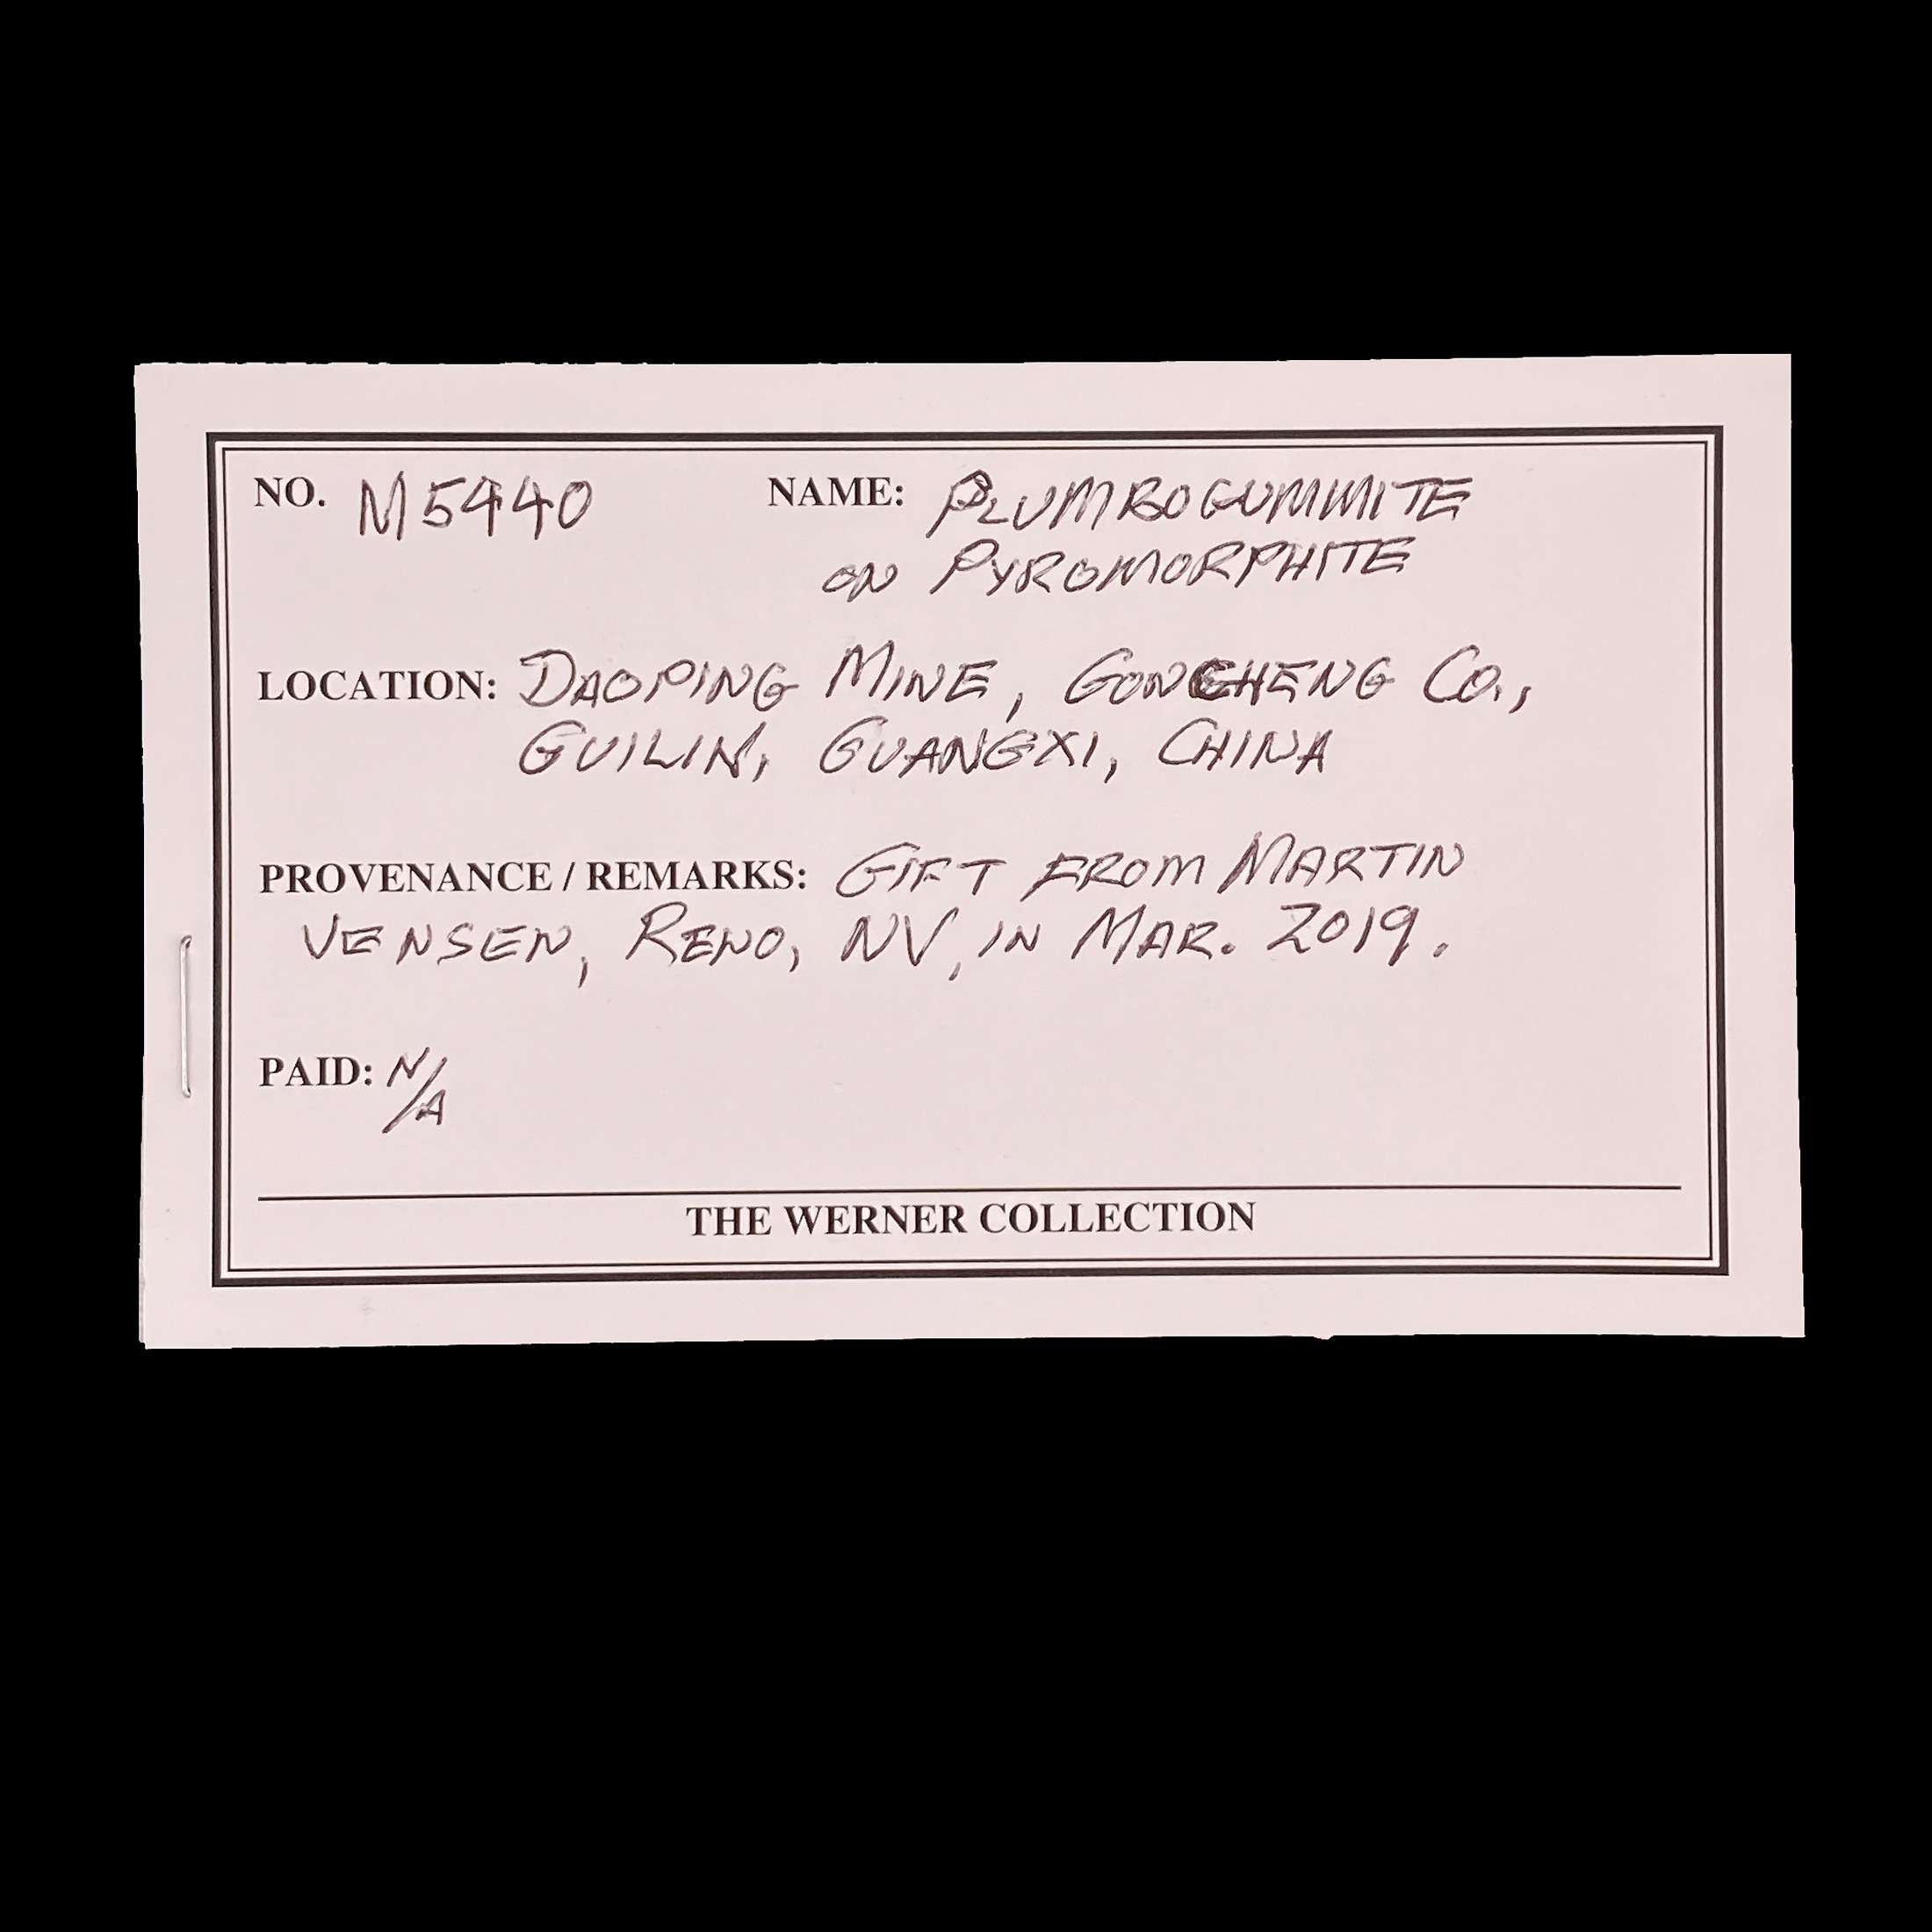 NO. M5440 NAME: PLUMBOGUMMITE
ON PYROMORPHITE
LOCATION: DAOPING MINE, GONCHENG CO.,
GUILIN, GUANGXI, CHINA
PROVENANCE / REMARKS: GIFT FROM MARTIN
VENSEN, RENO, NV, IN MAR. 2019.
PAID: N/A
THE WERNER COLLECTION